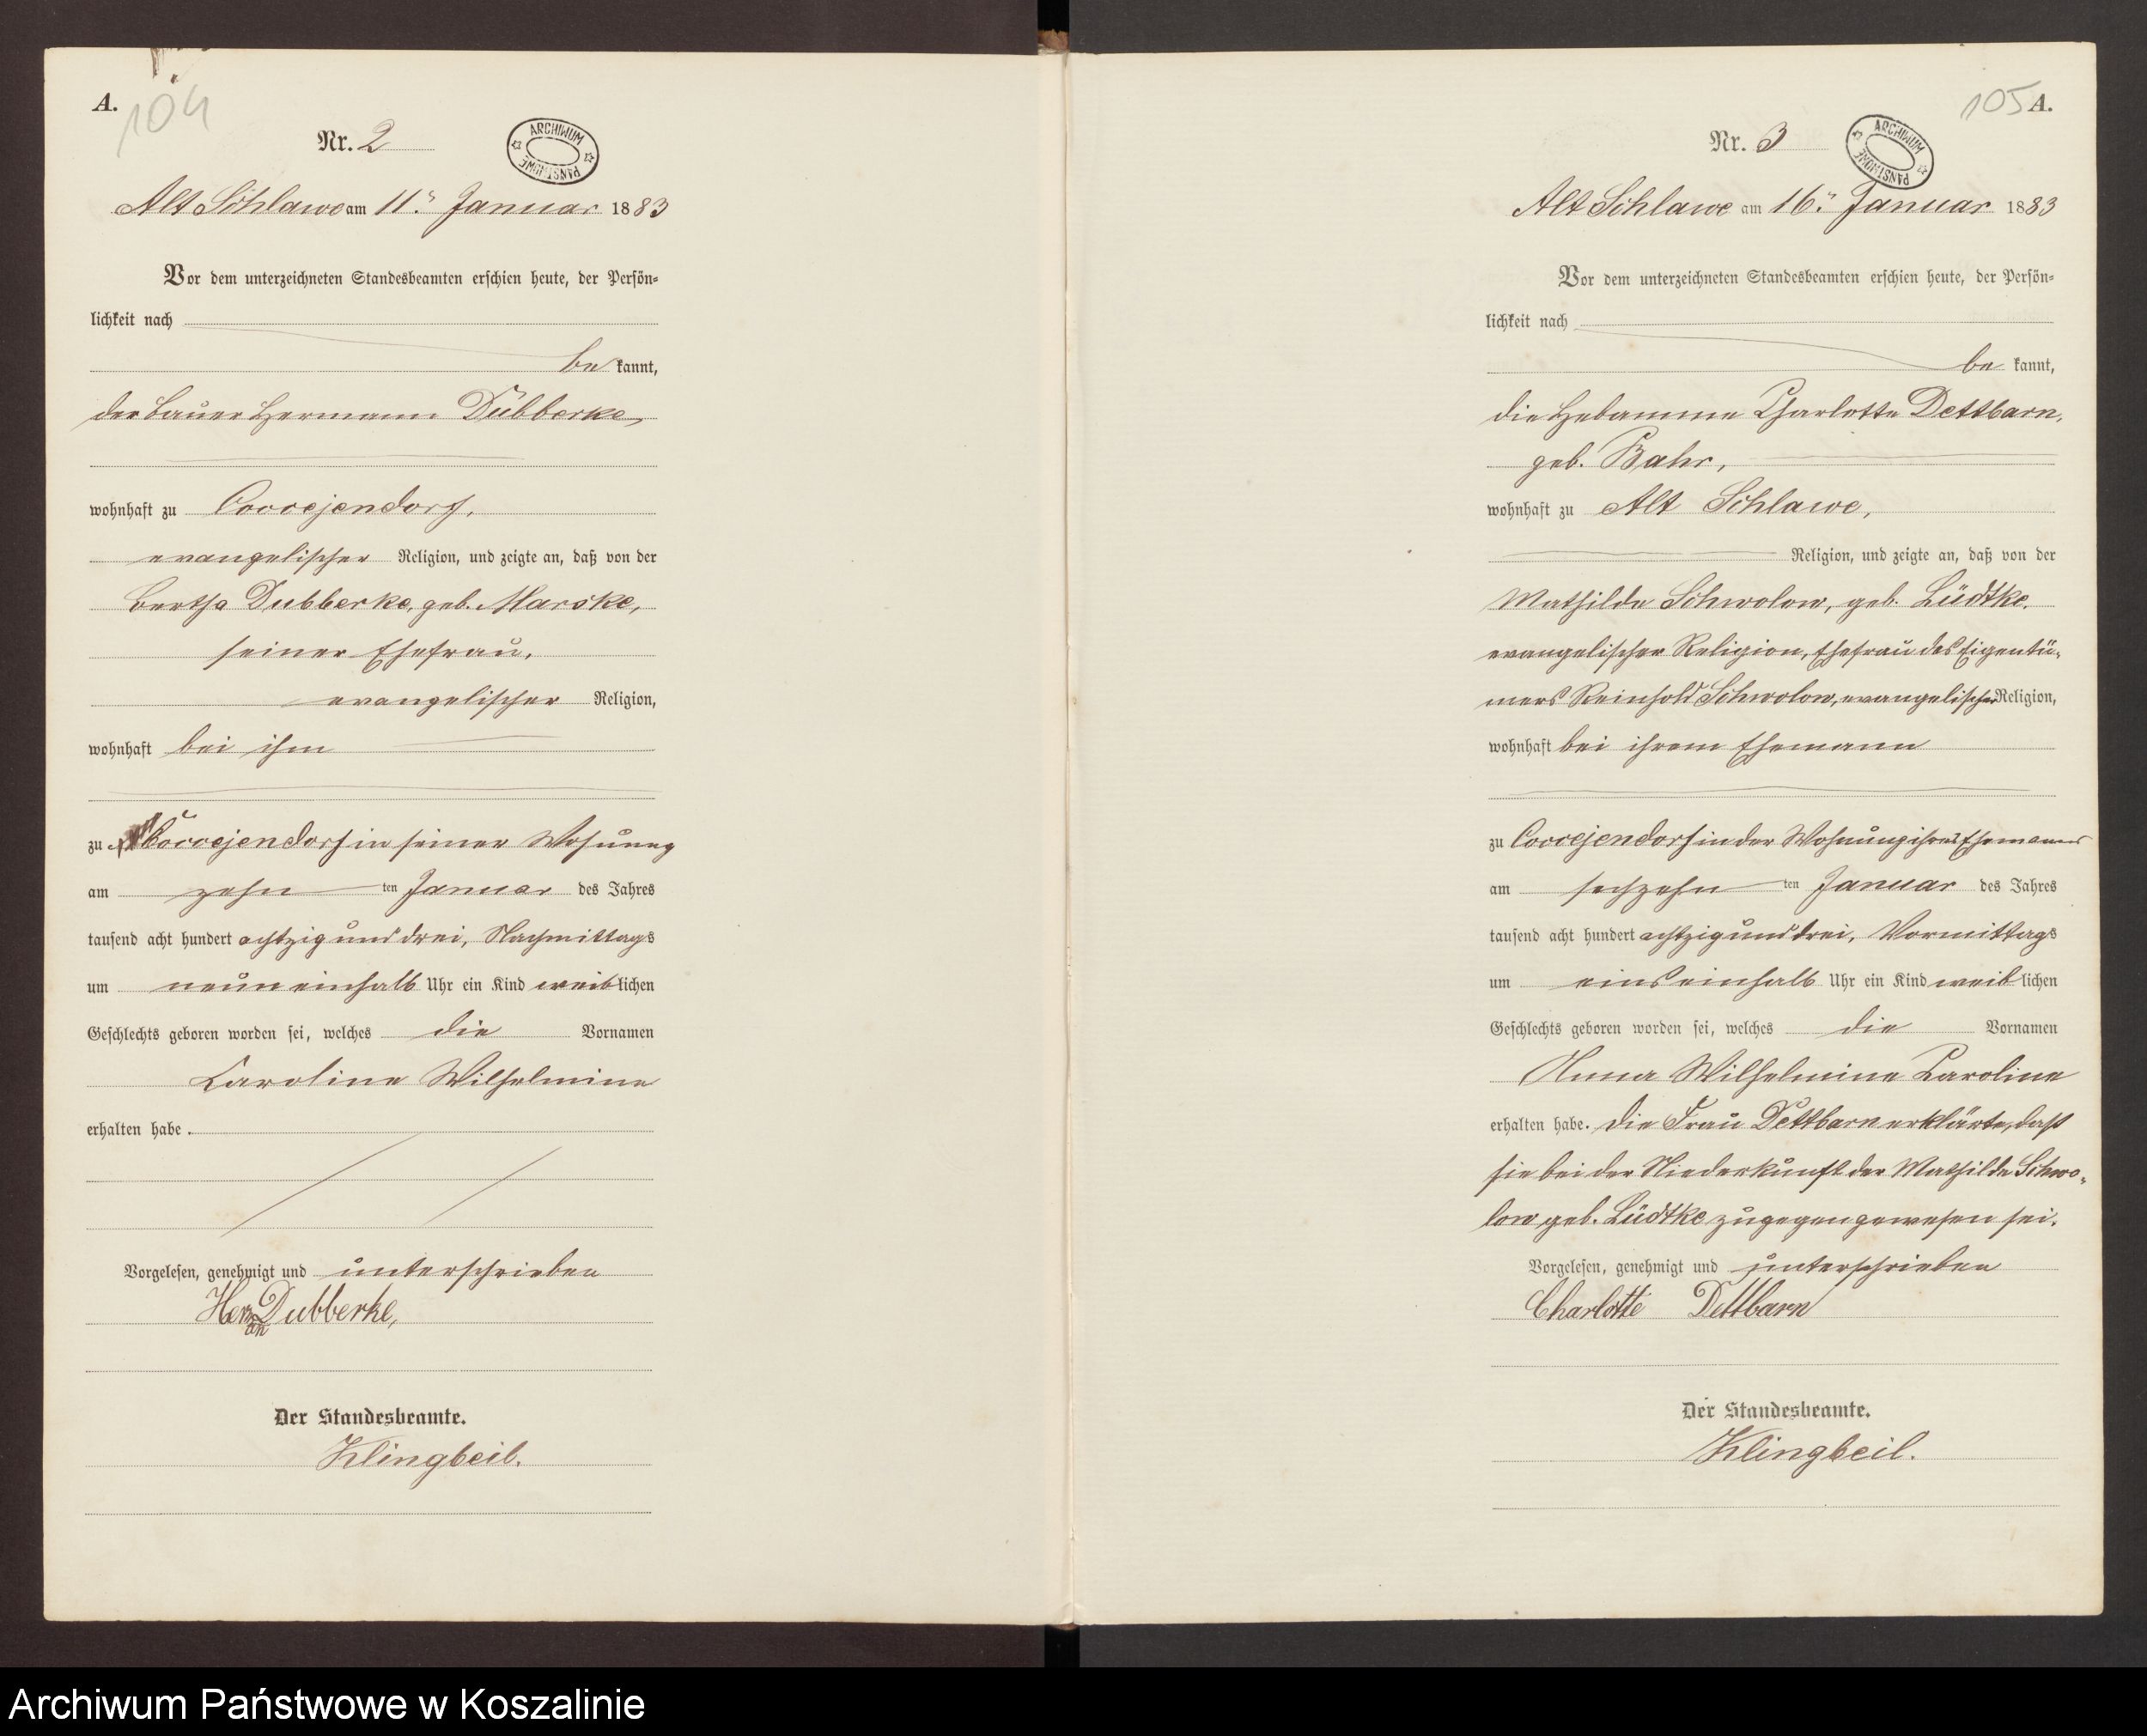 A.
104
Nr. 2
ARCHIWUM PAŃSTWOWE
Alt Schlawe am 11. Januar 1883
Vor dem unterzeichneten Standesbeamten erschien heute, der Persön-
lichkeit nach
be kannt,
der Bauer Hermann Dubberke,
wohnhaft zu Coccejendorf,
evangelischer Religion, und zeigte an, daß von der
Bertha Dubberke, geb. Marske,
seiner Ehefrau,
evangelischer Religion,
wohnhaft bei ihm
zu Coccejendorf in seiner Wohnung
am zehn ten Januar des Jahres
tausend acht hundert achtzig und drei, Nachmittags
um neun einhalb Uhr ein Kind weib lichen
Geschlechts geboren worden sei, welches die Vornamen
Caroline Wilhelmine
erhalten habe.
Vorgelesen, genehmigt und unterschrieben
Herman Dubberke,
Der Standesbeamte.
Klingbeil.
105 A.
Nr. 3
ARCHIWUM PAŃSTWOWE
Alt Schlawe am 16. Januar 1883
Vor dem unterzeichneten Standesbeamten erschien heute, der Persön-
lichkeit nach
be kannt,
die Hebamme Charlotte Dettbarn,
geb. Bahr,
wohnhaft zu Alt Schlawe,
Religion, und zeigte an, daß von der
Mathilde Schwolow, geb. Lüdtke,
evangelischer Religion, Ehefrau des Eigentü-
mers Reinhold Schwolow, evangelischer Religion,
wohnhaft bei ihrem Ehemann
zu Coccejendorf in der Wohnung ihres Ehemannes
am sechzehn ten Januar des Jahres
tausend acht hundert achtzig und drei, Vormittags
um eins einhalb Uhr ein Kind weib lichen
Geschlechts geboren worden sei, welches die Vornamen
Anna Wilhelmine Caroline
erhalten habe. Die Frau Dettbarn erklärte, daß
sie bei der Niederkunft der Mathilde Schwo-
low geb. Lüdtke zugegen gewesen sei.
Vorgelesen, genehmigt und unterschrieben
Charlotte Dettbarn
Der Standesbeamte.
Klingbeil.
Archiwum Państwowe w Koszalinie